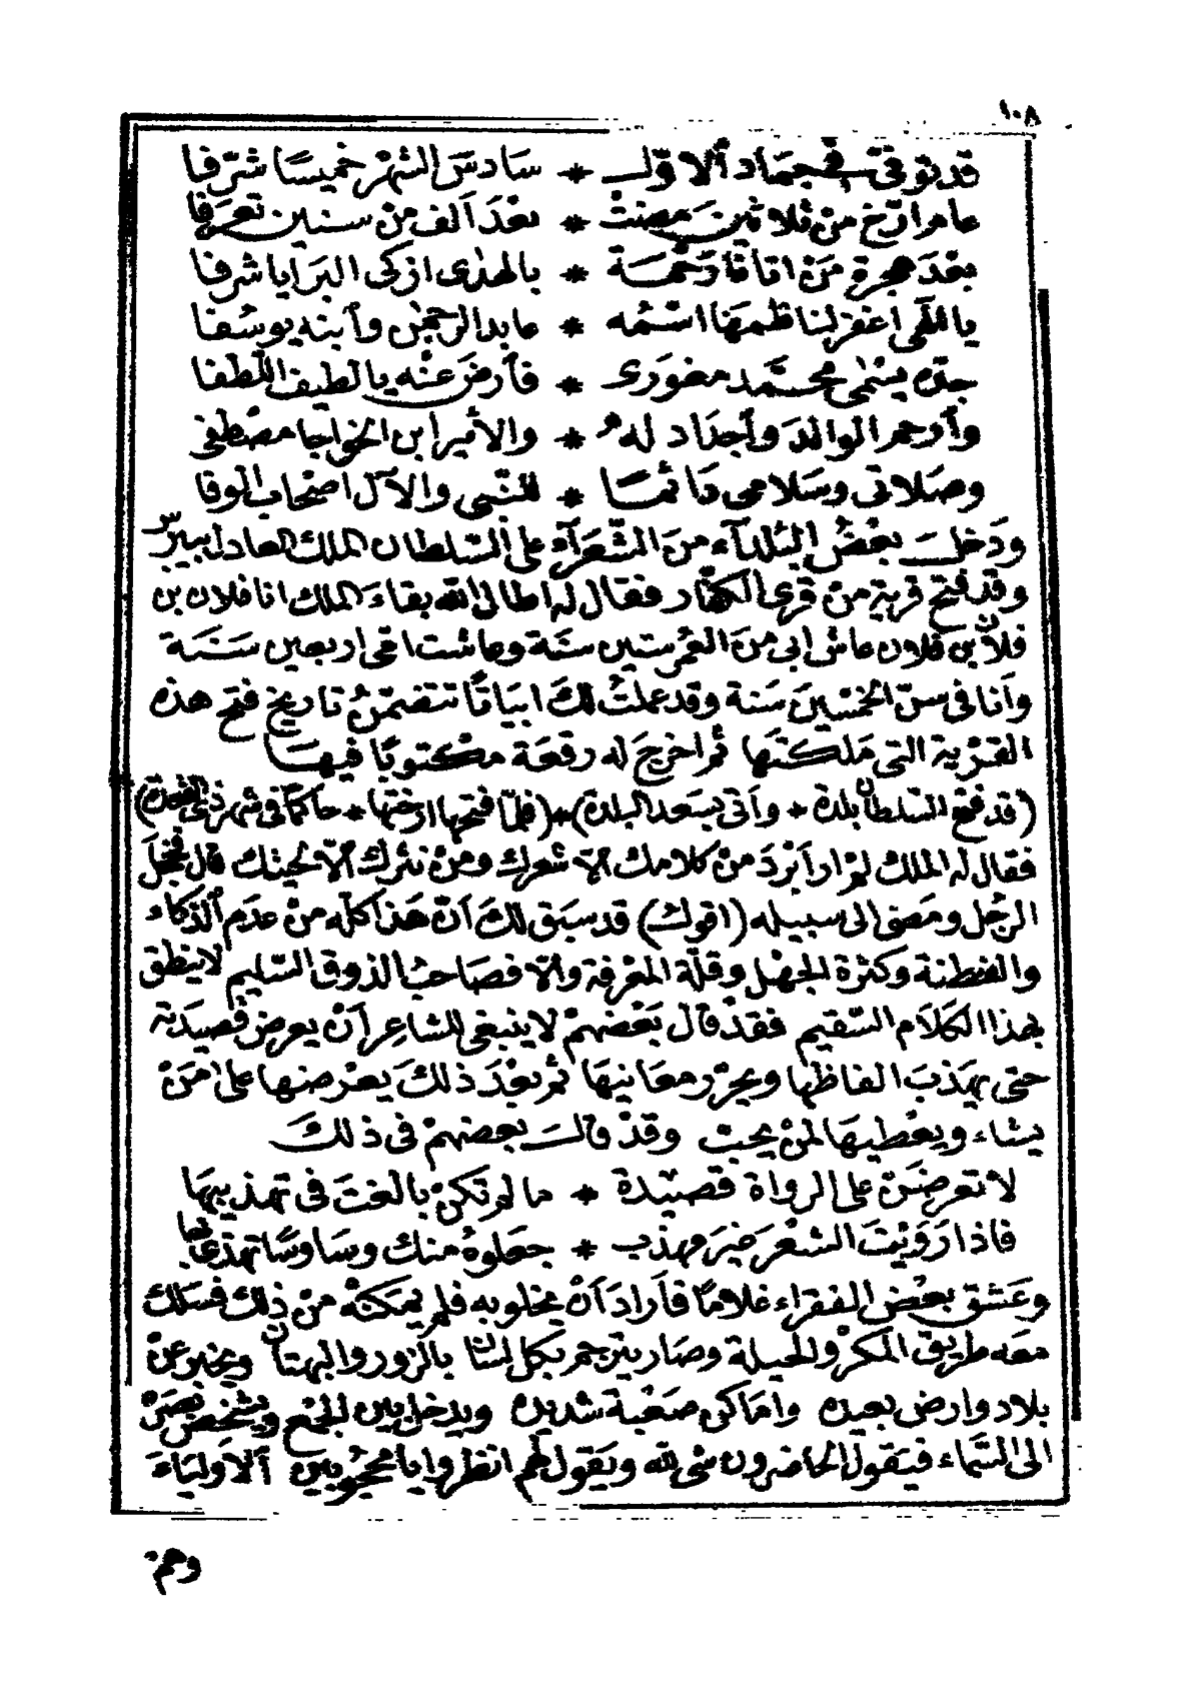 ١٠٨
قد توفي في جماد الاول * سادس الشهر خميسا شرفا
عام ارخ من ثلاثين مضت * بعد الف من سنين تعرفا
بعد هجرة من اتانا رحمة * بالهدى ازكى البرايا شرفا
يا الهي اغفر لناظمها اسمه * عابد الرحمن وابنه يوسفا
جده يسمى محمد مغورى * فأرض عنه يا لطيف اللطفا
وأرحم الوالد وأجداد له * والأمير ابن الخواجا مصطفى
وصلاتي وسلامي دائما * للنبي والآل اصحاب الوفا
ودخل بعض البلدآء من الشعرآء على السلطان الملك العادل بيبرس
وقد فتح قرية من قرى الكفار فقال له اطال الله بقاء الملك انا فلان بن
فلان بن فلان عاش ابي من العمر ستين سنة وعاشت امي اربعين سنة
وأنا في سن الخمسين سنة وقد عملت لك ابياتا تتضمن تاريخ فتح هذه
القرية التي ملكتها ثم اخرج له رقعة مكتوبا فيها
(قد فتح السلطان بلدة * وأتى بسعد البلدة)*(فلما فتحها ارختها * حاكما في شهر ذي القعدة)
فقال له الملك لم ار ابرد من كلامك الا شعرك ومن نثرك الا لحيتك قال فخجل
الرجل ومضى الى سبيله (اقول) قد سبق لك أن هذا كله من عدم الذكاء
والفطنة وكثرة الجهل وقلة المعرفة والا فصاحب الذوق السليم لا ينطق
بهذا الكلام السقيم فقد قال بعضهم لا ينبغي للشاعر أن يعرض قصيدته
حتى يهذب الفاظها ويحرر معانيها ثم بعد ذلك يعرضها على من
يشاء ويعطيها لمن يحب وقد قال بعضهم في ذلك
لا تعرضن على الرواة قصيدة * ما لم تكن بالغت في تهذيبها
فاذا رويت الشعر غير مهذب * جعلوه منك وساوسا تهذى بها
وعشق بعض الفقراء غلاما فأراد أن يخلو به فلم يمكنه من ذلك فسلك
معه طريق المكر والحيلة وصار يترجم بكل لسان بالزور والبهتان ويخبر عن
بلاد وارض بعيده واماكن صعبة شديده ويدخل بين الجمع ويشخص بصره
الى السماء فيقول الحاضرون شي لله ويقول لهم انظروا يا محجوبين الأولياء
وهم